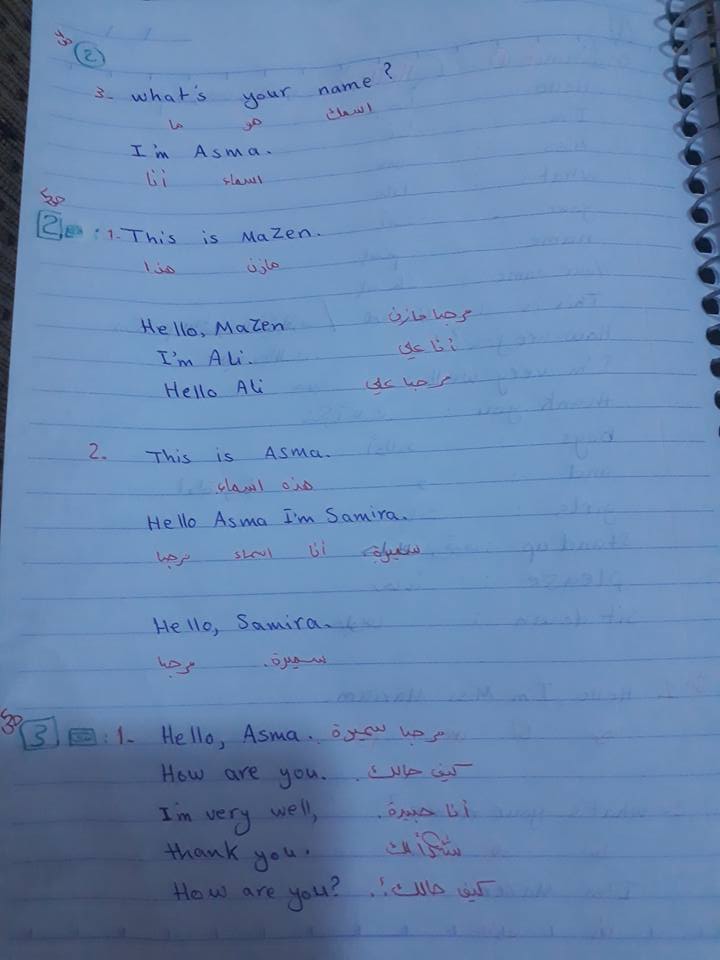 2
3- what's your name?
ما هو اسمك
I'm Asma.
أنا اسماء
2 : 1. This is Mazen.
هذا مازن
Hello, Mazen مرحبا مازن
I'm Ali. أنا علي
Hello Ali مرحبا علي
2. This is Asma.
هذه اسماء
Hello Asma I'm Samira.
مرحبا اسماء أنا سميرة
Hello, Samira.
مرحبا سميرة.
3 : 1- Hello, Asma. مرحبا سميرة
How are you. كيف حالك
I'm very well, أنا جيدة.
thank you. شكراً لك
How are you? كيف حالك؟